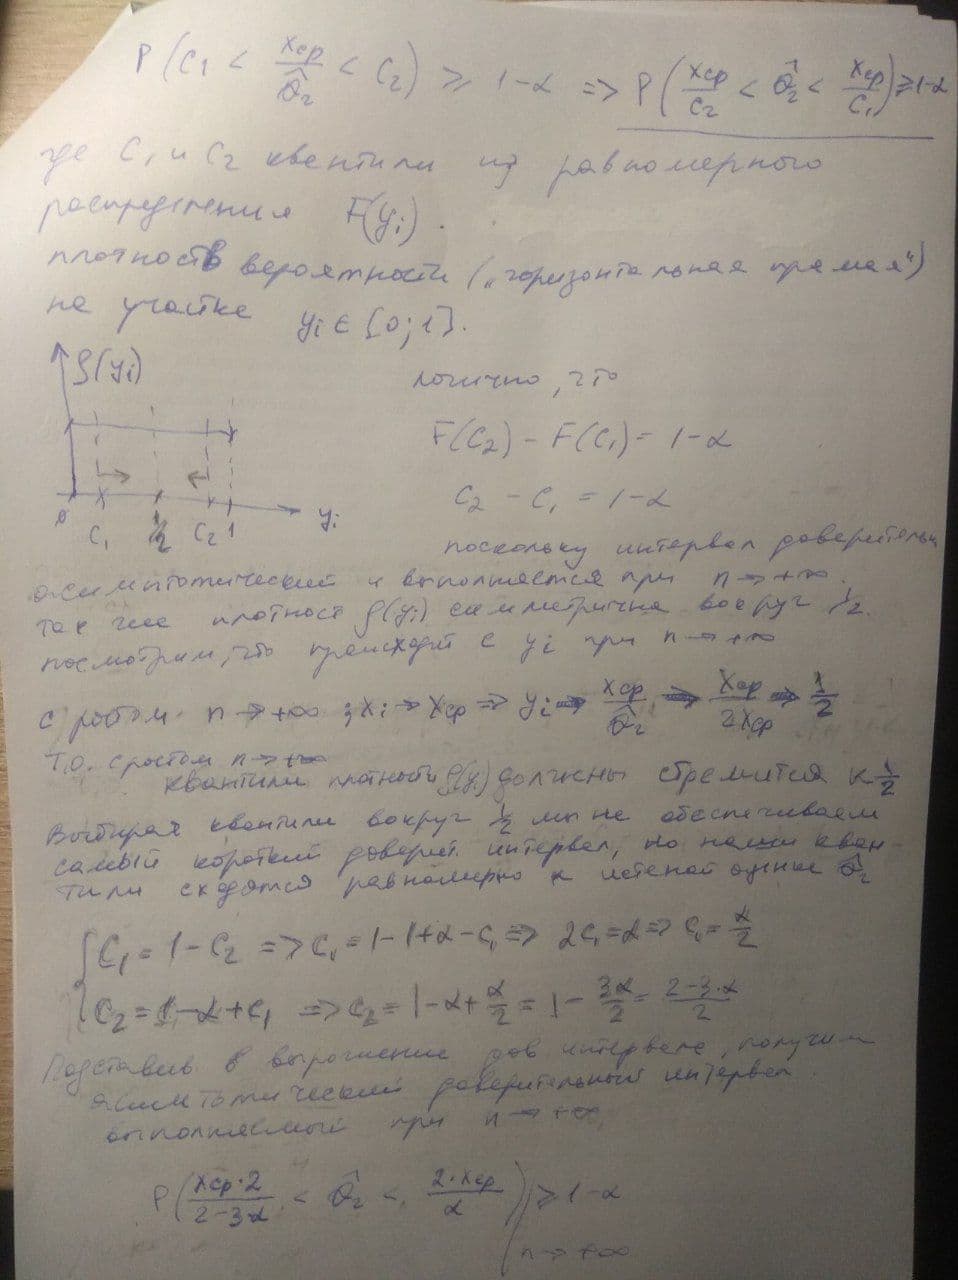 P(C₁ < xср/θ̂₂ < C₂) ⩾ 1-α => P(xср/C₂ < θ̂₂ < xср/C₁) ⩾ 1-α
где C₁ и C₂ квентили из равномерного
распределения F(yᵢ).
плотность вероятности („горизонтальная прямая")
на участке yᵢ ∈ [0;1].
ρ(yᵢ)
0 C₁ ½ C₂ 1 yᵢ
логично, что
F(C₂) - F(C₁) = 1-α
C₂ - C₁ = 1-α
поскольку интервал доверительн
асимптотический и выполняется при n→+∞.
так же плотност ρ(yᵢ) симметрична вокруг ½.
посмотрим, что происходит с yᵢ при n→+∞
с ростом n→+∞ ; xᵢ → xср => yᵢ => xср/θ̂₂ => xср/2xср => ½
Т.о. с ростом n→+∞
квантили плотности ρ(yᵢ) должны стремится к ½
Выбирая квантили вокруг ½ мы не обеспечиваем
самый короткий доверит. интервал, но наши кван-
тили сходятся равномерно к оценки θ̂₂
{ C₁ = 1-C₂ => C₁ = 1-1+α-C₁ => 2C₁ = α => C₁ = α/2
C₂ = 1-α+C₁ => C₂ = 1-α+α/2 = 1 - 3α/2 = 2-3·α/2
Подставив в выражение дов интервала, получим
асимптотический доверительный интервал
выполняемый при n→+∞
P(xср·2/2-3α < θ̂₂ < 2·xср/α) ⩾ 1-α
n→+∞